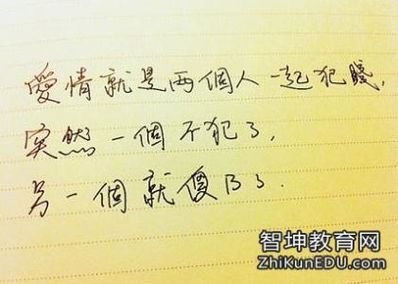 愛情就是两個人一起犯賤,
突然一個不犯了,
另一個就傻B了.
智坤教育网
ZhiKunEDU.com